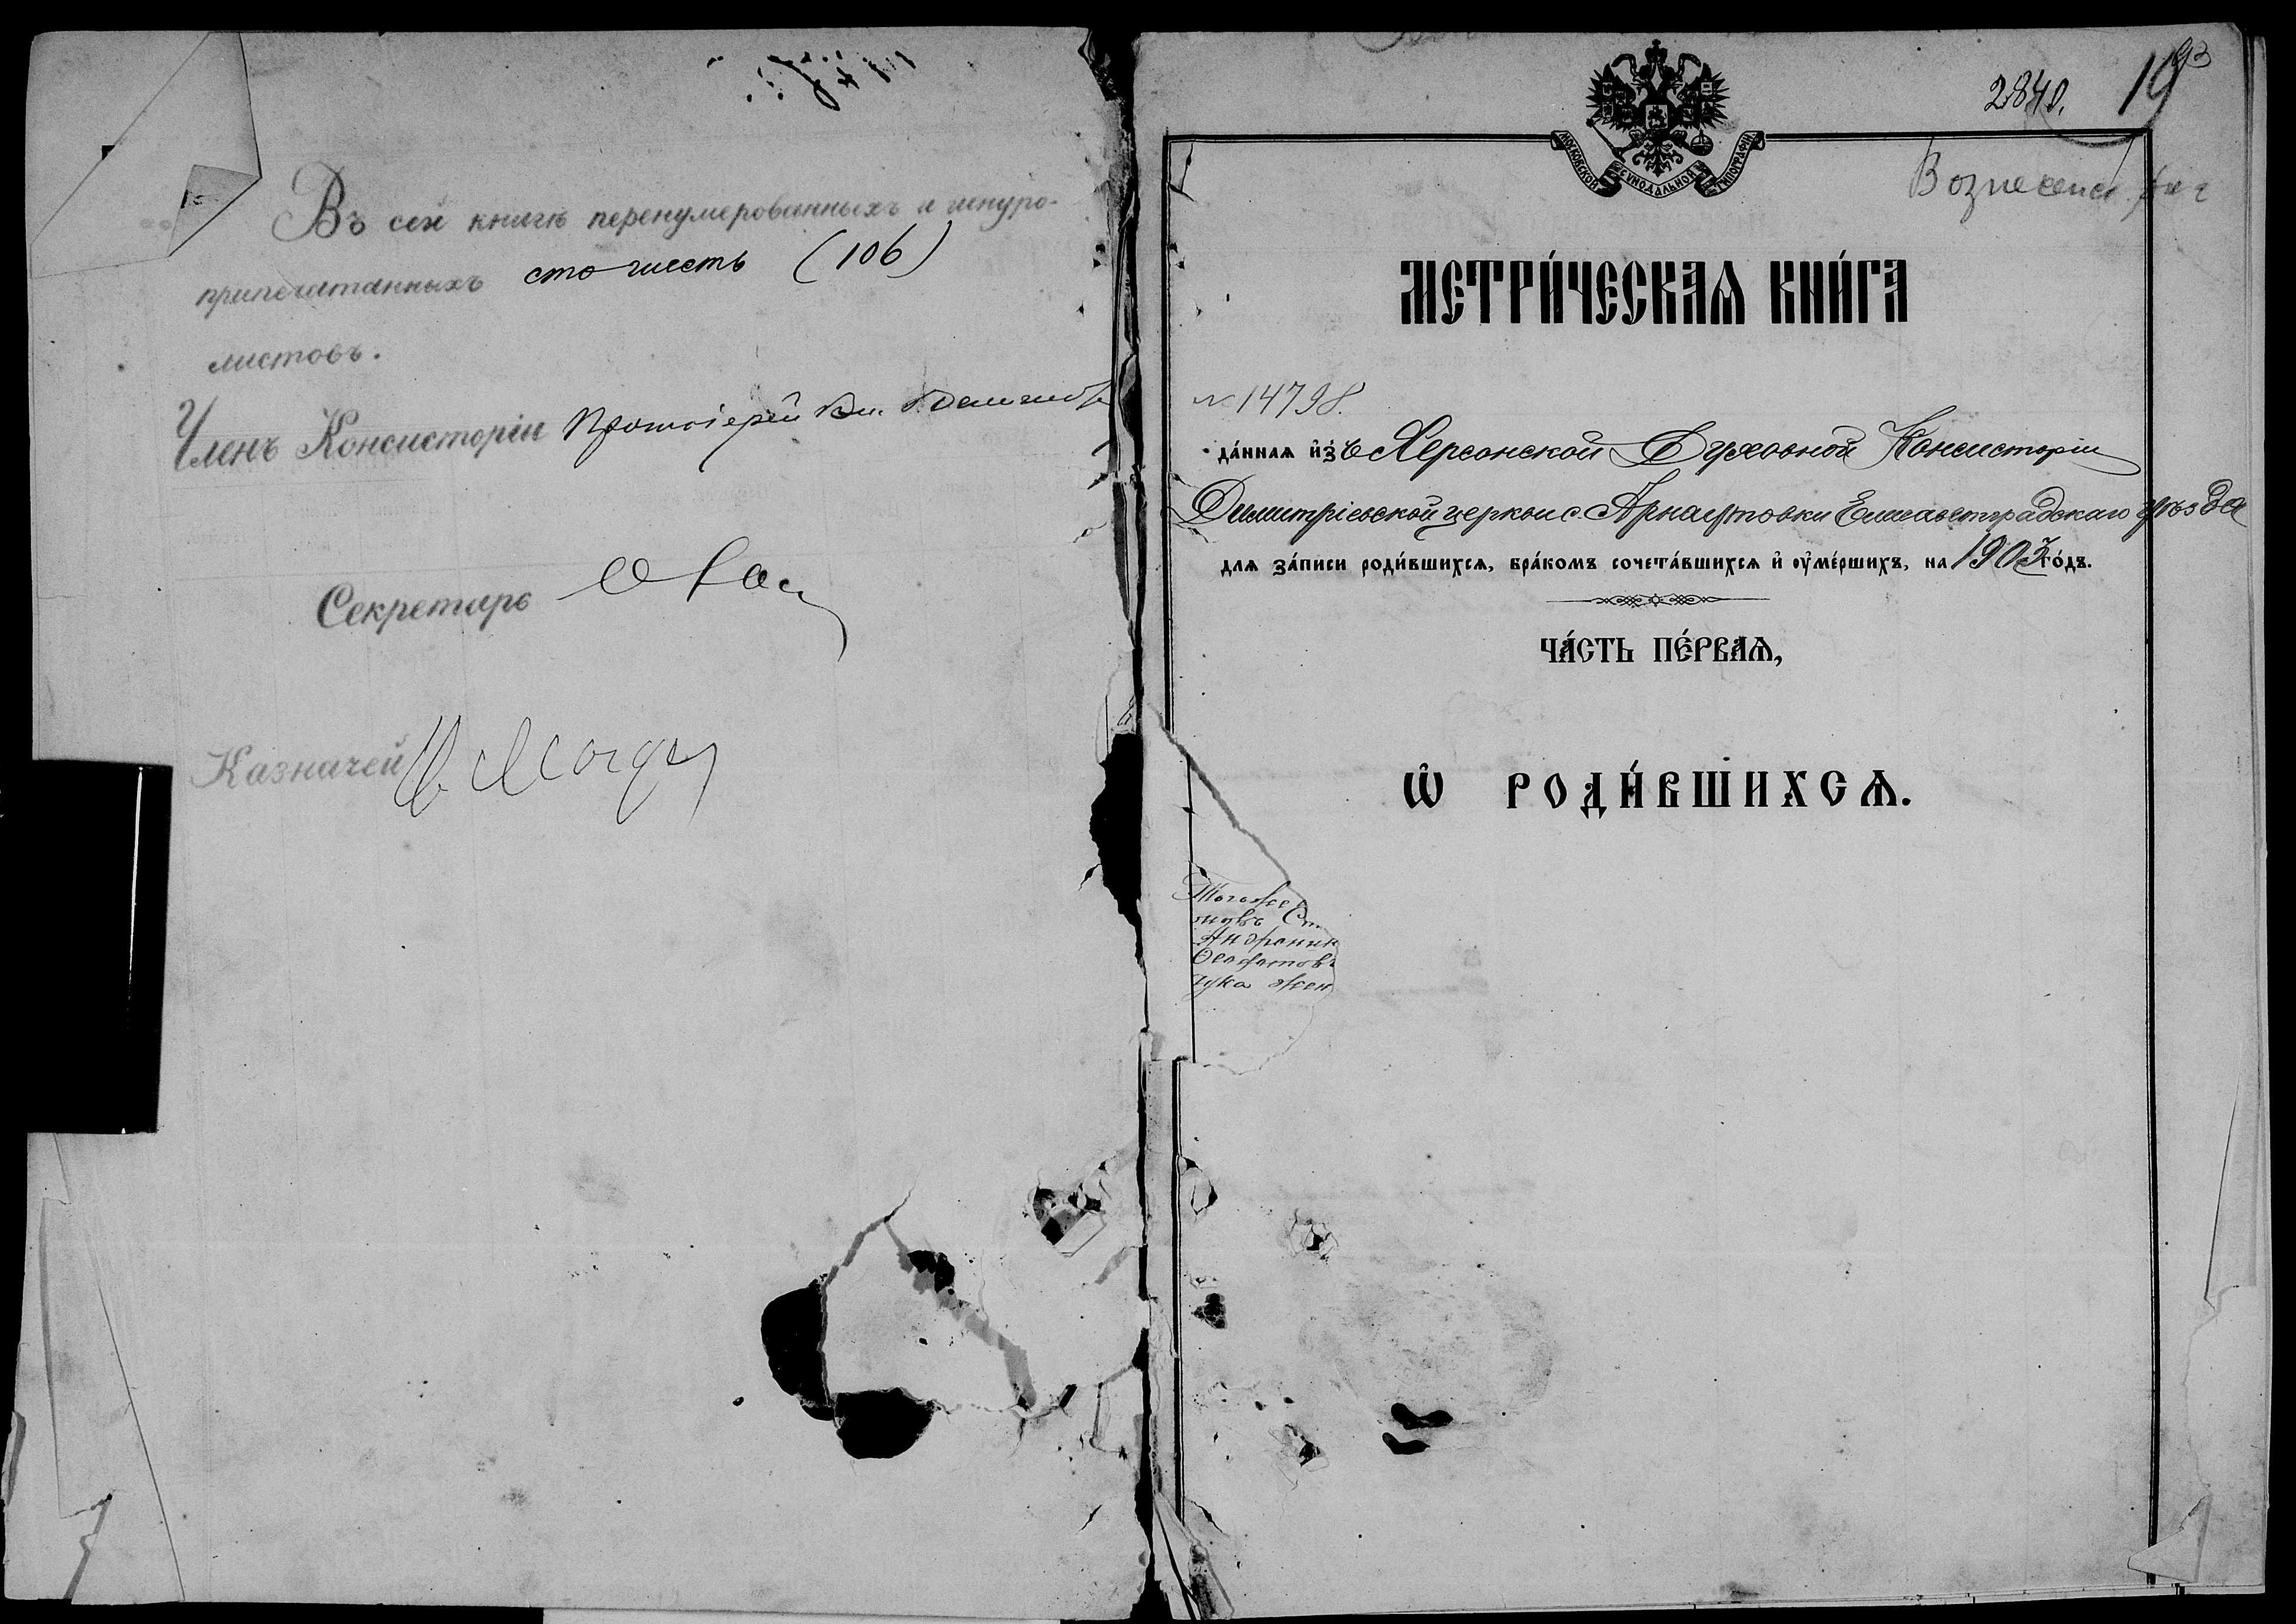 Въ сей книгѣ перенумерованныхъ и шнуро-
припечатанныхъ сто шесть (106)
листовъ.
Членъ Консисторіи Протоіерей Вл.
Секретарь
Казначей
2840. 19
93
МОСКОВСКОЙ СѴНОДАЛЬНОЙ ТИПОГРАФІИ
МЕТРИ́ЧЕСКАѦ КНИ́ГА
№ 14798.
да́ннаѧ из̾ Херсонской Духовной Консисторіи
Димитріевской церкви с. Арнаутовки Елисаветградскаго уѣзда
длѧ за́писи роди́вшихсѧ, бра́комъ сочета́вшихсѧ и҆ ᲂу҆ме́ршихъ, на 1903 го́дъ.
ЧА́СТЬ ПЕ́РВАѦ,
Ѽ РОДИ́ВШИХСѦ.
Тогоже
Ст.
Андроник
жен